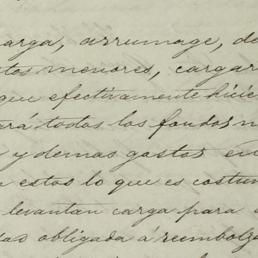 carga, arrumage, de
tos menores, cargar
que efectivamente hicie
rá todos los fondos n
y demas gastos en
a estos lo que es costum
levantan carga para
das obligada á reembolza